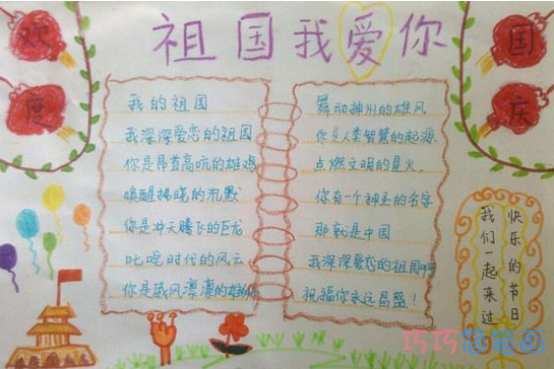 祖国我爱你
欢度
国庆
我的祖国
我深深爱恋的祖国
你是昂首高吭的雄鸡
唤醒拂晓的沉默
你是冲天腾飞的巨龙
叱咤时代的风云
你是威风凛凛的雄狮
舞动神州的雄风
你是人类智慧的起源
点燃文明的星火
你有一个神圣的名字
那就是中国
我深深爱恋的祖国啊
祝福你永远昌盛！
快乐的节日
我们一起来过
巧巧简笔画